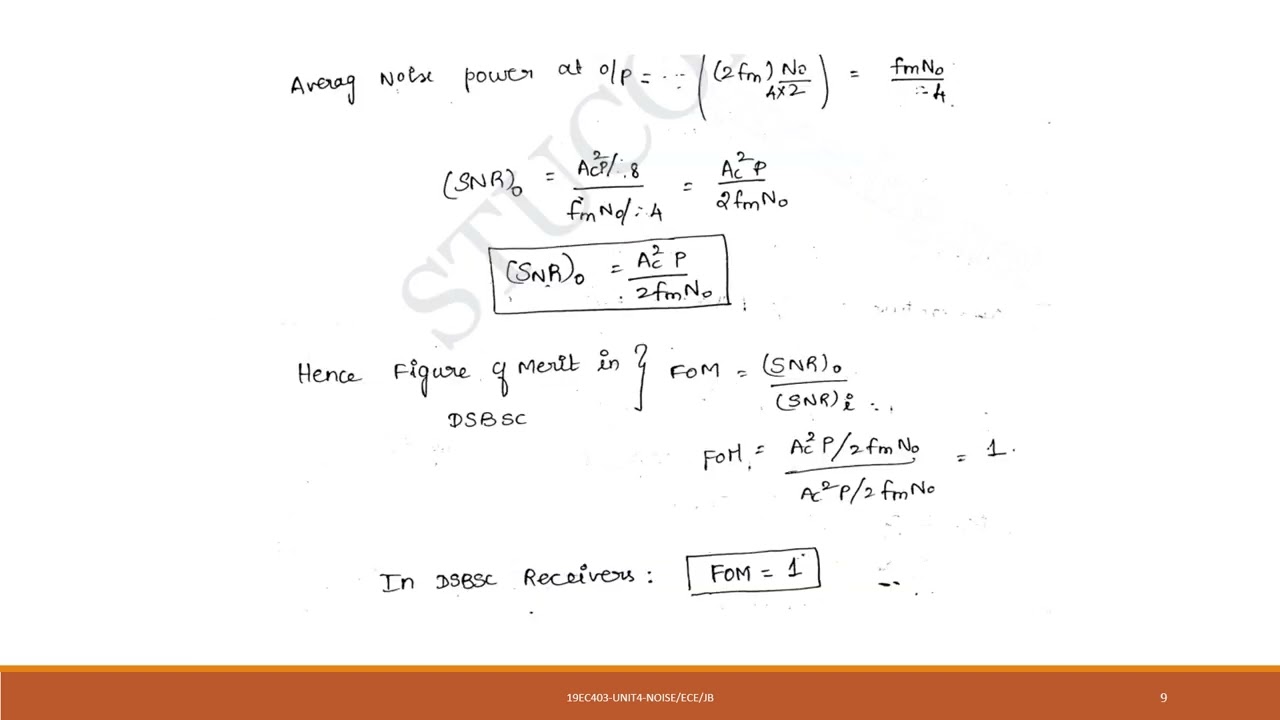 Averag Noise power at O/P = ((2fm) No/4×2) = fmNo/4
(SNR)o = Ac²P/8 / fmNo/4 = Ac²P / 2fmNo
(SNR)o = Ac² P / 2fmNo
Hence Figure of Merit in } FOM = (SNR)o / (SNR)i
DSBSC
FOM = Ac²P/2fmNo / Ac²P/2fmNo = 1.
In DSBSC Receivers : FOM = 1
STUCO
19EC403-UNIT4-NOISE/ECE/JB
9